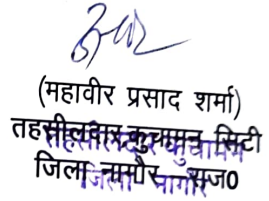 (महावीर प्रसाद शर्मा)
तहसीलदार कुचामन सिटी
जिला नागौर राज0